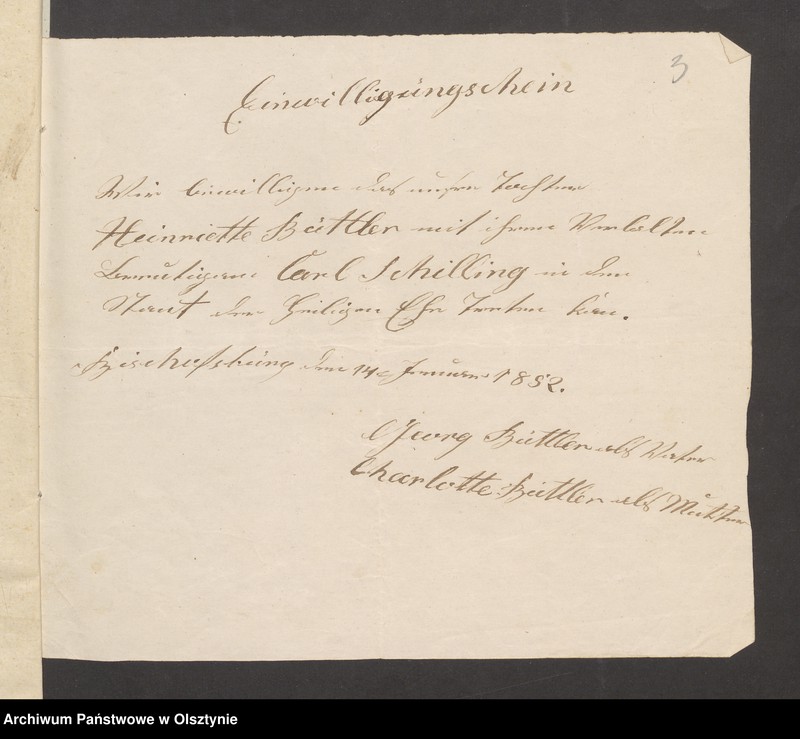 3
Einwilligungschein
Wir bewilligen das unsre Tochter
Heinriette Büttler mit ihrem Verlobten
Breutigam Carl Schilling in den
Stant der Heiligen Ehe Treten kan.
Bischofsbürg den 14t Januar 1852.
Georg Büttler als Vater
Charlotte Büttler als Mutter
Archiwum Państwowe w Olsztynie